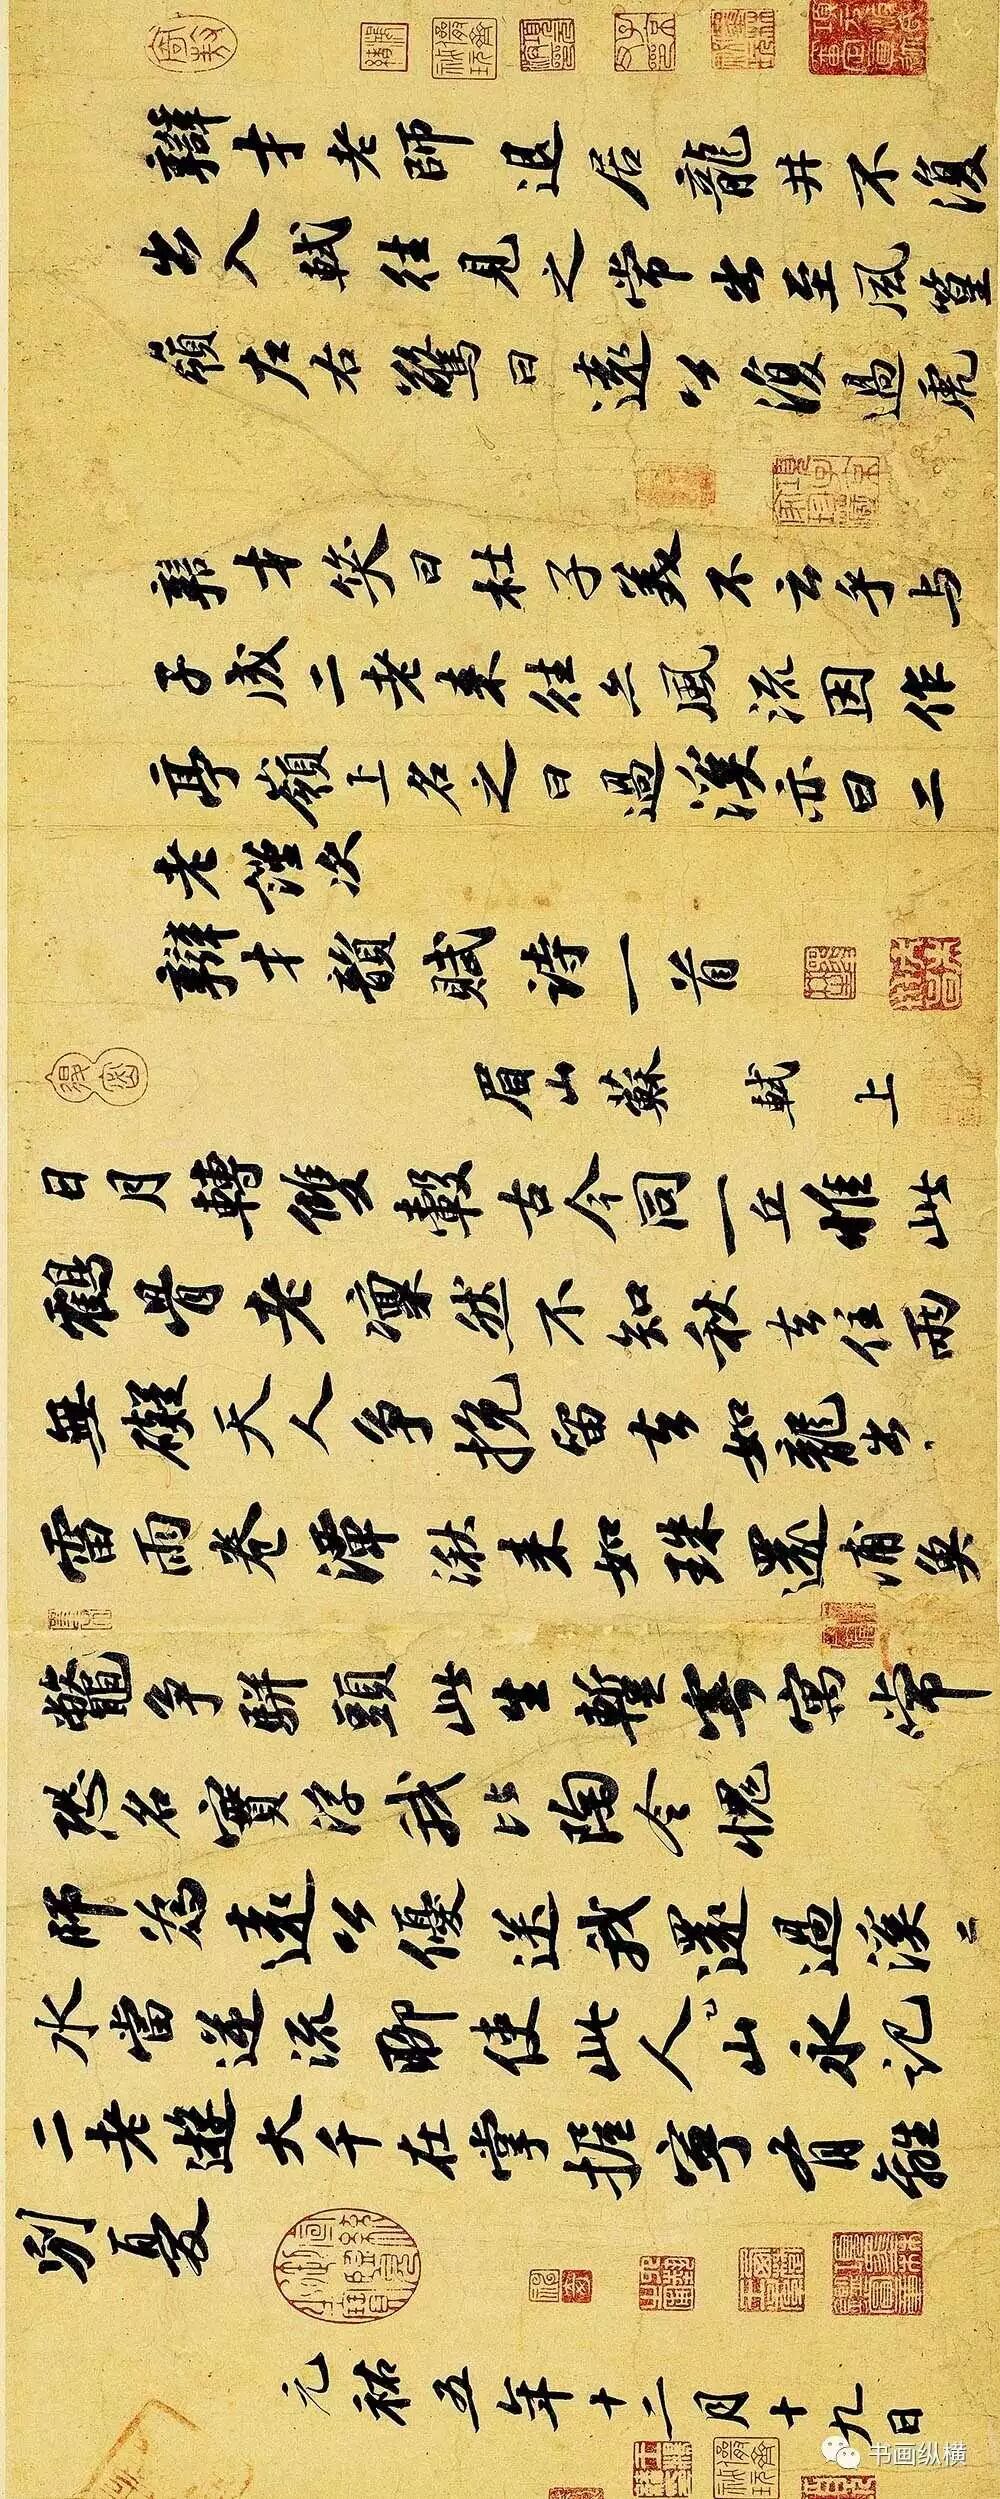 辯才老師退居龍井不復
出入軾往見之常出至風篁
嶺左右驚曰遠公復過虎
辯才笑曰杜子美不云乎与
子成二老来往亦風流因作
亭嶺上名之曰過溪亦曰二
老謹次
辯才韻賦詩一首
眉山蘇軾上
日月轉雙轂古今同一丘惟此
鶴骨老凜然不知秋去住兩
無礙天人争挽留去如龍出
雷雨卷潭湫来如珠還浦魚
鼈争駢頭此生蹔寄寓常
恐名實浮我比陶令愧
師為遠公優送我還過溪〻
水當逆流聊使此人山永記
二老遊大千在掌握寧有離
別憂
元祐五年十二月十九日
书画纵横